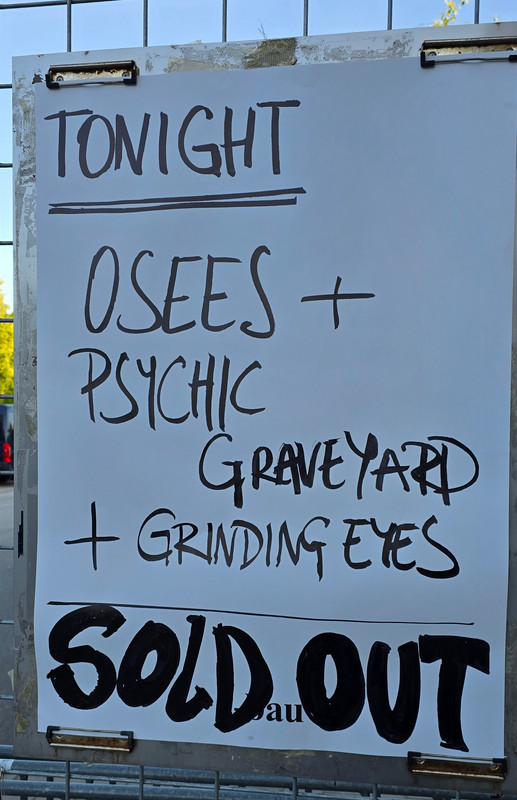 TONIGHT
OSEES +
PSYCHIC
GRAVEYARD
+ GRINDING EYES
SOLD OUT